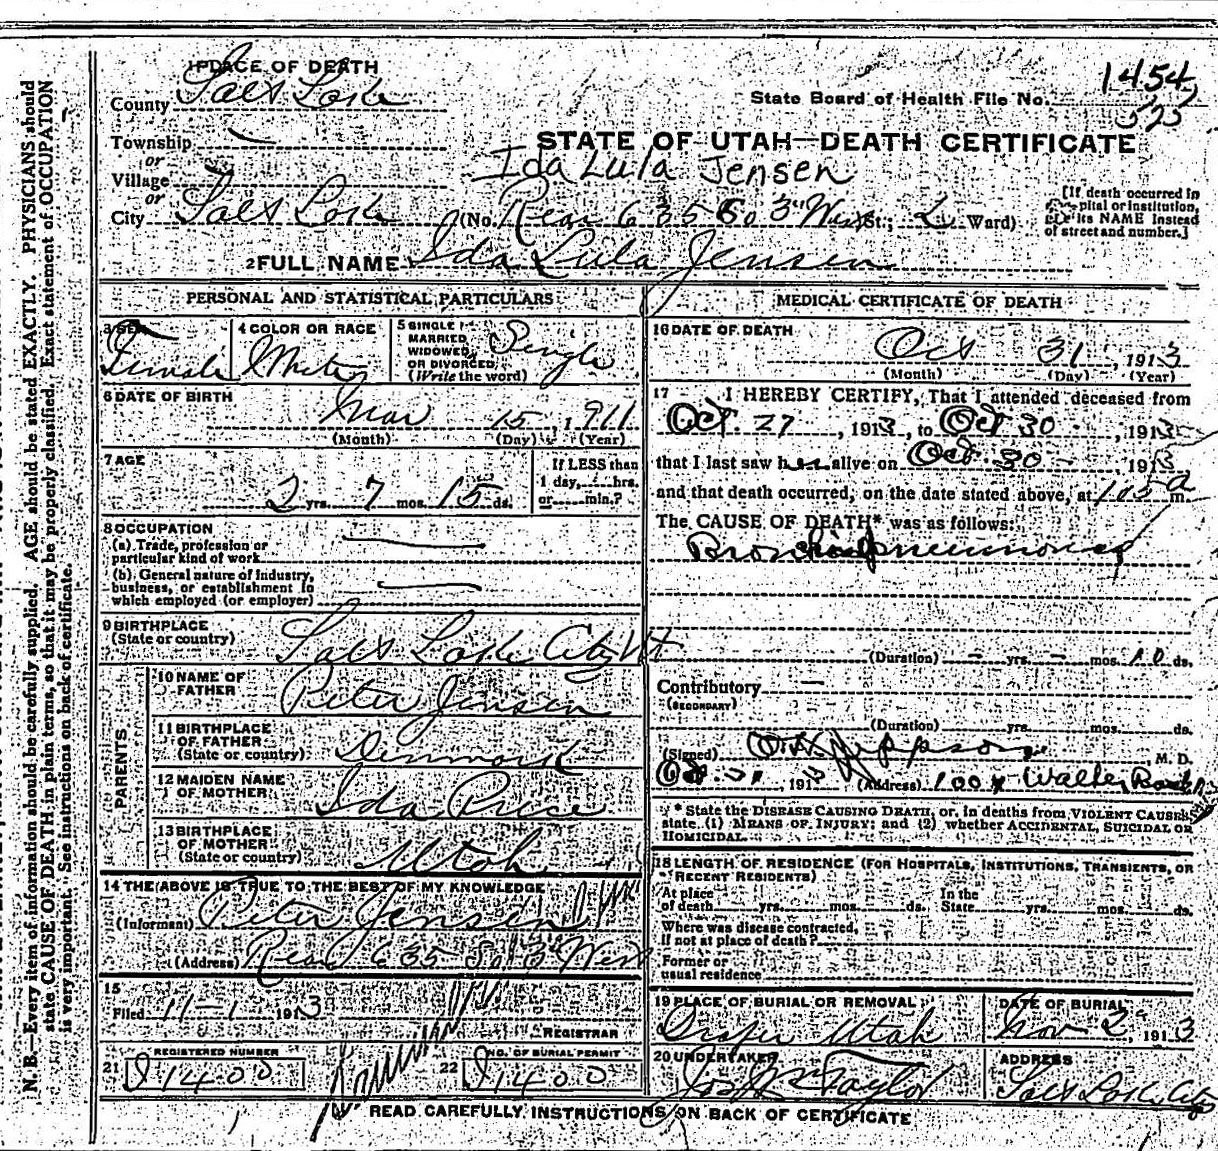 N. B.—Every item of information should be carefully supplied. AGE should be stated EXACTLY. PHYSICIANS should
state CAUSE OF DEATH in plain terms, so that it may be properly classified. Exact statement of OCCUPATION
is very important. See instructions on back of certificate.
1 PLACE OF DEATH
County Salt Lake
State Board of Health File No. 1454
525
Township —
STATE OF UTAH—DEATH CERTIFICATE
or
Ida Lula Jensen
Village
or
City Salt Lake (No. Rear 635 So 3rd West St.; 2 Ward)
[If death occurred in
pital or institution,
its NAME instead
of street and number.]
2 FULL NAME Ida Lula Jensen
PERSONAL AND STATISTICAL PARTICULARS
3 SEX
Female
4 COLOR OR RACE
White
5 SINGLE
MARRIED,
WIDOWED,
OR DIVORCED,
(Write the word)
Single
6 DATE OF BIRTH
Mar 15, 1911
(Month) (Day) (Year)
7 AGE
2 yrs. 7 mos. 15 ds.
If LESS than
1 day, hrs.
or min.?
8 OCCUPATION
(a) Trade, profession or
particular kind of work —
(b) General nature of Industry,
business, or establishment in
which employed (or employer) —
9 BIRTHPLACE
(State or country) Salt Lake City Ut
PARENTS
10 NAME OF
FATHER Peter Jensen
11 BIRTHPLACE
OF FATHER
(State or country) Denmark
12 MAIDEN NAME
OF MOTHER Ida Price
13 BIRTHPLACE
OF MOTHER
(State or country) Utah
14 THE ABOVE IS TRUE TO THE BEST OF MY KNOWLEDGE
(Informant) Peter Jensen
(Address) Rear 635 So 3rd West
15
Filed 11-1 1913
REGISTRAR
21 REGISTERED NUMBER
J1400
22 NO. OF BURIAL PERMIT
J1400
MEDICAL CERTIFICATE OF DEATH
16 DATE OF DEATH
Oct 31, 1913
(Month) (Day) (Year)
17 I HEREBY CERTIFY, That I attended deceased from
Oct. 27, 1913, to Oct 30, 1913
that I last saw her alive on Oct. 30 — 1913
and that death occurred, on the date stated above, at 105 a m.
The CAUSE OF DEATH* was as follows:
Bronchial pneumonia
(Duration) — yrs. — mos. 10 ds.
Contributory —
(SECONDARY)
(Duration) yrs. mos. ds.
(Signed) M. D.
Oct. 31, 1913 (Address) 1004 Walker Bank
* State the DISEASE CAUSING DEATH, or, in deaths from VIOLENT CAUSES,
state (1) MEANS OF INJURY; and (2) whether ACCIDENTAL, SUICIDAL OR
HOMICIDAL
18 LENGTH OF RESIDENCE (FOR HOSPITALS, INSTITUTIONS, TRANSIENTS, OR
RECENT RESIDENTS)
At place
of death yrs. mos. ds.
In the
State yrs. mos. ds.
Where was disease contracted,
If not at place of death?
Former or
usual residence
19 PLACE OF BURIAL OR REMOVAL
Draper Utah
DATE OF BURIAL
Nov 2, 1913
20 UNDERTAKER
Jos Wm Taylor
ADDRESS
Salt Lake City
READ CAREFULLY INSTRUCTIONS ON BACK OF CERTIFICATE